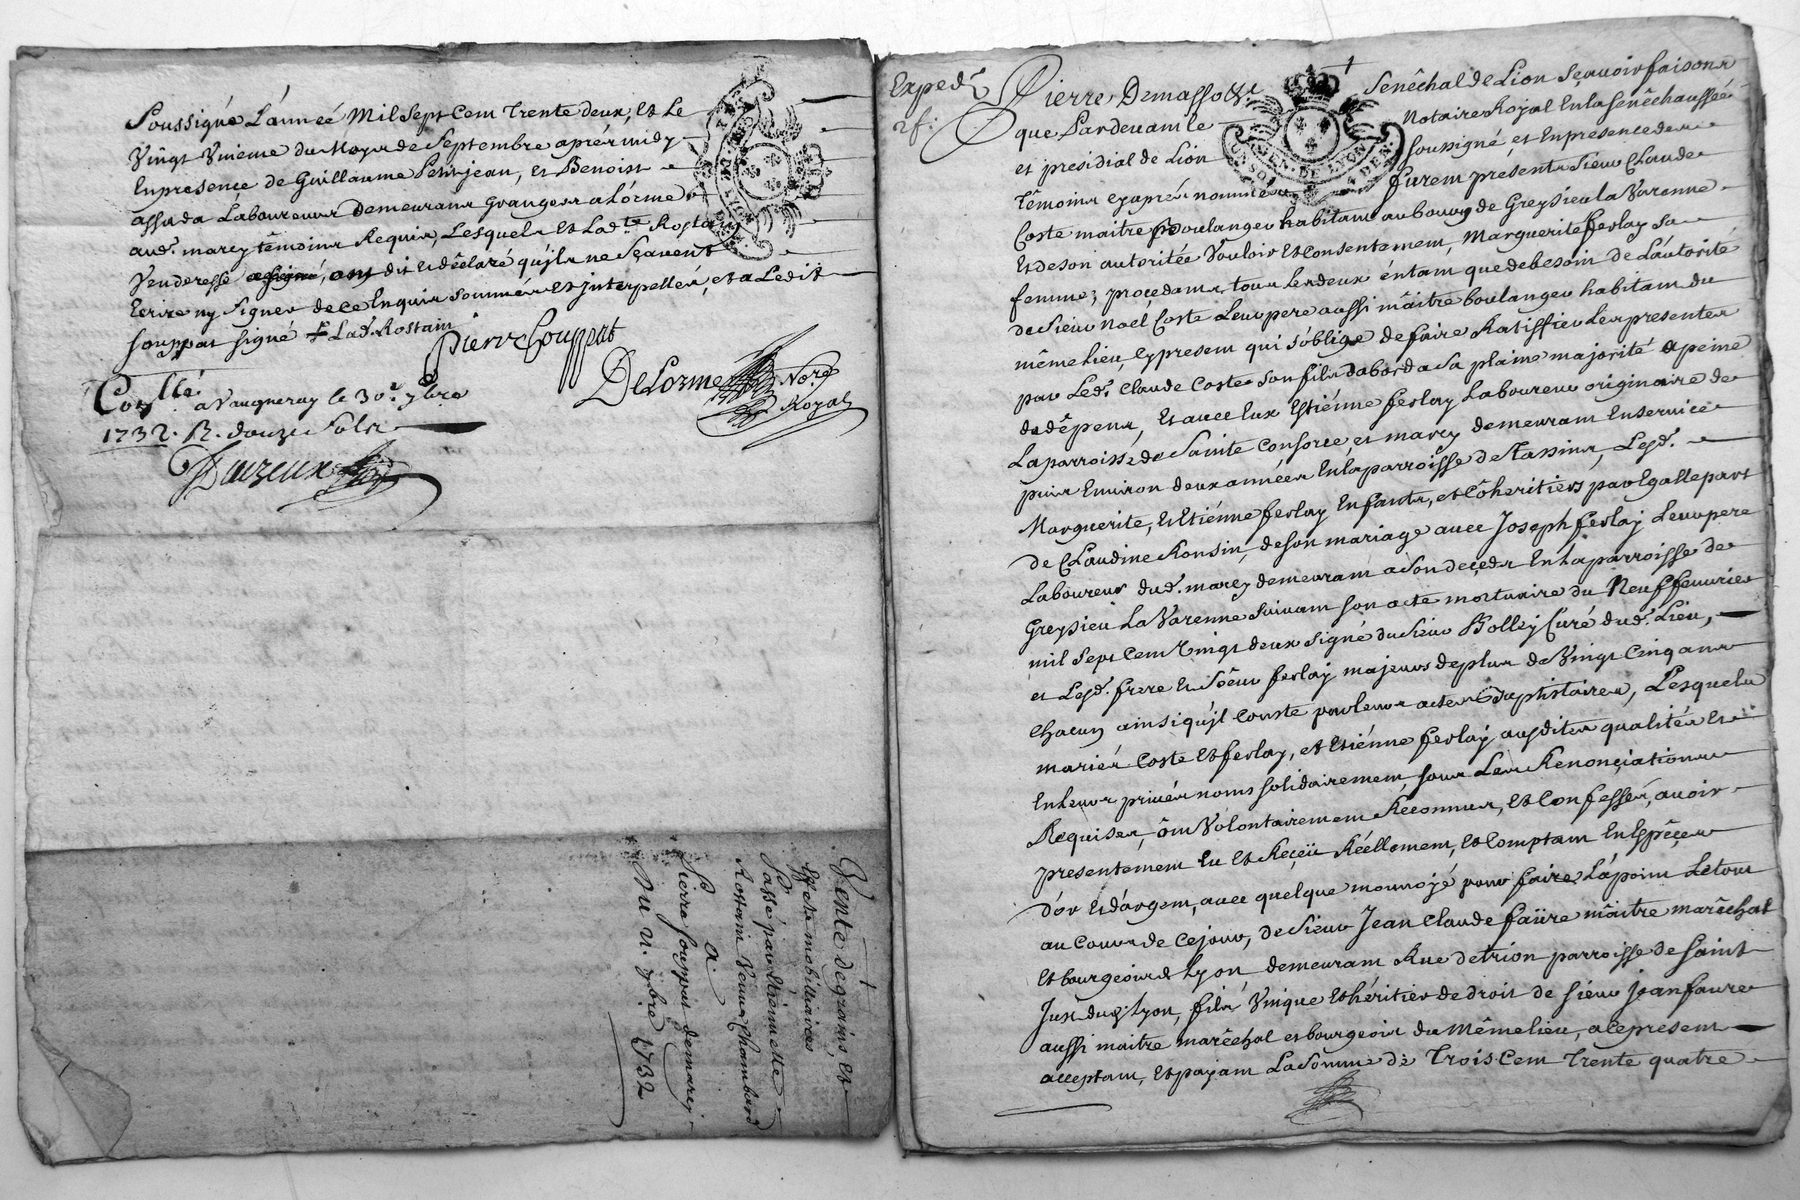 Soussigné L'année Mil Sept Cent trente deux, Et Le
Vingt Vnieme du Moys de Septembre aprés midy
En presence de Guillaume Petitjean, et Benoist
assada Laboureurs Demeurans Grangers a Lorme
aud. marcy têmoins Requis, Lesquels Et Lad.te Rostain
Venderesse ont dit Et dêclaré qu'jls ne Sçavent
Ecrire ny Signer de ce Enquis Sommés Et jnterpellés, et a Ledit
Souppat signé Lad. Rostain
Pierre Souppat
DeLorme Nore
Royal
Con.llé a Vaugneray le 30.e 7bre
1732. R. douze sols
Vente de grains, Et
Effets mobilliaires
Passé par Etiennette
Rostain Veuve Chambard
a
Sr. Pierre Souppat de marcy
Du 21. 7bre 1732
Exped.
2 f:
Pierre Demasso Senêchal de Lion Sçavoir faisons
que Pardevant le Notaire Royal En la Senêchaussée
et presidial de Lion Soussigné, et En presence des
Têmoins cy aprés nommés furent presents Sieur Claude
Coste maître Boulanger habitant au bourg de Greysieu la Varenne
Et de son autoritée Vouloir Et Consentement, Marguerite ferlay sa
femme, procedants tous les deux éntant que de besoin de L'autorité
de Sieur noel Coste Leur pere aussi mâitre boulanger habitant du
même lieu, cy present qui s'oblige de faire Ratiffier Les presentes
par Led. Claude Coste son fils d'abord a sa plaine majorité a peine
de dêpens, Et avec Eux Etiénne ferlay Laboureur originaire de
La parroisse de Sainte Consorce et marcy demeurant En service
puis Environ deux années En la parroisse de Tassins, Lesd.
Marguerite, Et Etiénne ferlay Enfants, et Côheritiers par Egalle part
de Claudine Ronsin, de son mariage avec Joseph ferlay Leur pere
Laboureur dud. marcy demeurant a son deçeds En La parroisse de
Greysieu La Varenne Suivant son acte mortuaire du Neuf fevrier
mil Sept Cent Vingt deux signé du Sieur Curé dud. Lieu,
et Lesd. frere Et Sœur ferlay majeurs de plus de Vingt Cinq ans
Chacun ainsi qu'jl Conste par leurs actes Baptistaires, Lesquels
mariés Coste Et ferlay, et Etiénne ferlay ausdites qualités Et
En leurs privés noms solidairement sous Les Renonçiations
Requises, ônt Volontairement Reconnus, Et Confessés, avoir
presentement Eu Et Reçeü Réellement, et Comptant En Espêces
d'or Et d'argent, avec quelque monnoyé pour faire L'apoint Le tout
au Cours de Ce jour, de Sieur Jean Claude Faüre mâitre marêchal
Et bourgeois de Lyon demeurant Rue de trion parroisse de Saint
Just dud. Lyon, fils Vnique Et hêritier de droit de Sieur Jean faure
aussi maitre marêchal et bourgeois du Même lieu, a ce present
acceptant, Et payant La Somme de Trois Cent Trente quatre